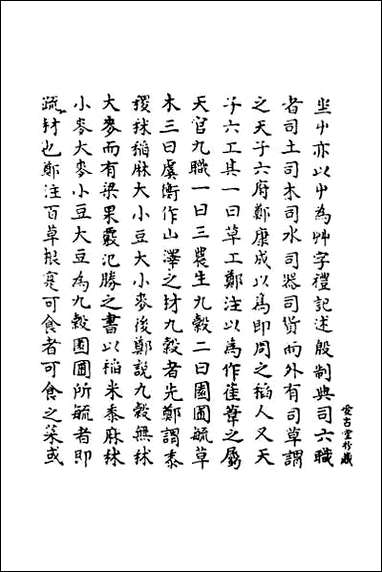 屮亦以屮為艸字禮記述殷制典司六職
者司土司木司水司器司貨而外有司草謂
之天子六府鄭康成以為即周之稻人又天
子六工其一曰草工鄭注以為作萑葦之屬
天官九職一曰三農生九穀二曰園圃毓草
木三曰虞衡作山澤之材九穀者先鄭謂黍
稷秫稻麻大小豆大小麥後鄭說九穀無秫
大麥而有梁果氾勝之書以稻米黍麻秫
小麥大麥小豆大豆為九穀園圃所毓者即
疏材也鄭注百草根實可食者可食之菜或
古堂抄藏